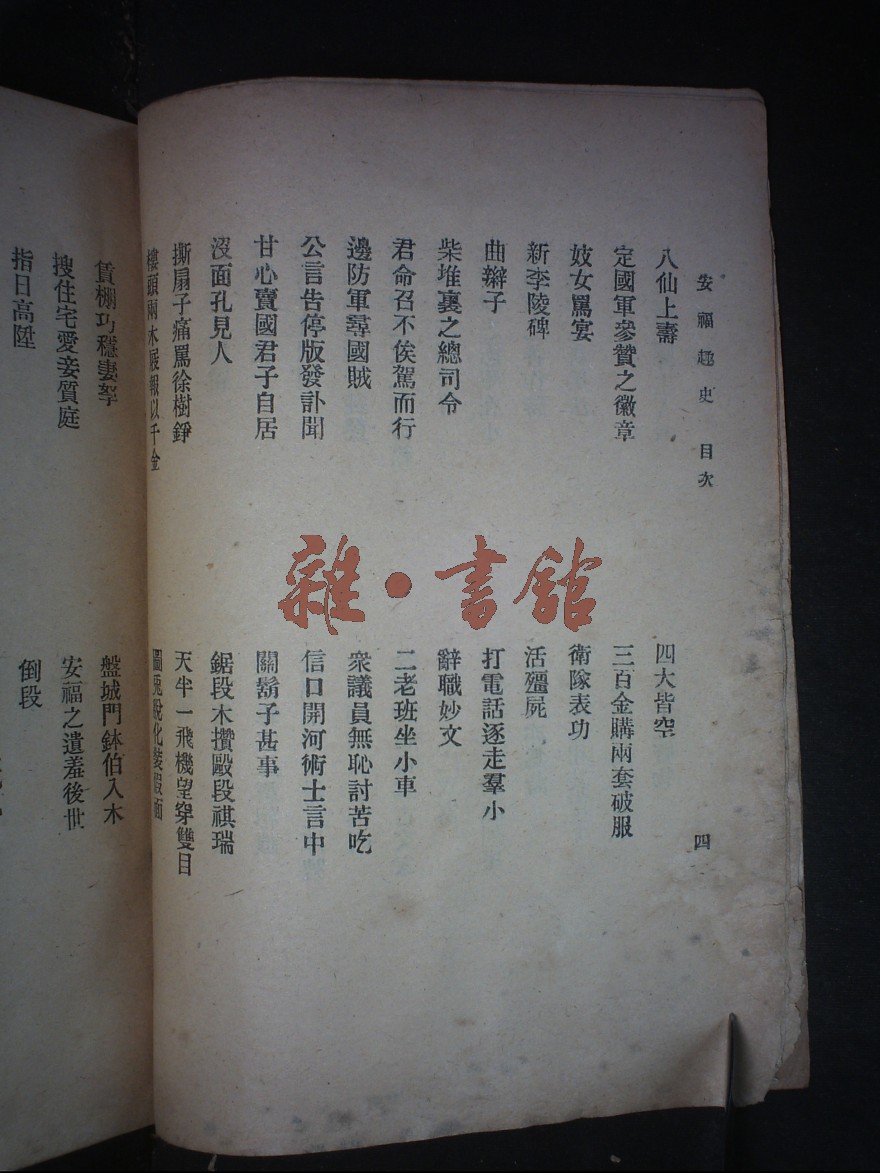 安福趣史 目次
四
八仙上壽
定國軍參贊之徽章
妓女罵宴
新李陵碑
曲辮子
柴堆裏之總司令
君命召不俟駕而行
邊防軍尋國賊
公言告停版發訃聞
甘心賣國君子自居
沒面孔見人
撕扇子痛罵徐樹錚
樓頭兩木屐報以千金
四大皆空
三百金購兩套破服
衛隊表功
活殭屍
打電話逐走羣小
辭職妙文
二老班坐小車
衆議員無恥討苦吃
信口開河術士言中
關鬍子甚事
鋸段木攢毆段祺瑞
天半一飛機望穿雙目
圖兔脫化裝假面
賃棚巧穩妻孥
搜住宅愛妾質庭
指日高陞
盤城門鉢伯入木
安福之遺羞後世
倒段
雜·書館